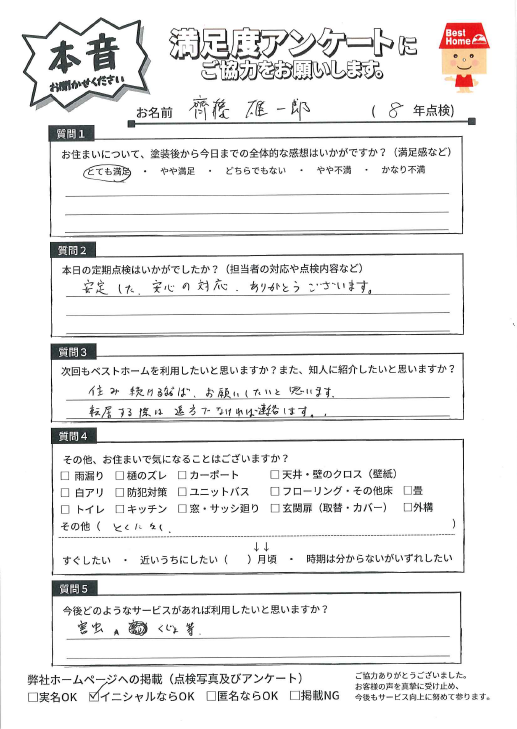 本音
お聞かせください
満足度アンケートに
ご協力をお願いします。
Best Home
お名前 齊藤 雄一郎 ( 8 年点検)
質問1
お住まいについて、塗装後から今日までの全体的な感想はいかがですか？（満足感など）
とても満足 ・ やや満足 ・ どちらでもない ・ やや不満 ・ かなり不満
質問2
本日の定期点検はいかがでしたか？（担当者の対応や点検内容など）
安定した、安心の対応、ありがとうございます。
質問3
次回もベストホームを利用したいと思いますか？また、知人に紹介したいと思いますか？
住み続ければ、お願いしたいと思います。
転居する際は遠方でなければ連絡します。
質問4
その他、お住まいで気になることはございますか？
□ 雨漏り □ 樋のズレ □ カーポート □ 天井・壁のクロス（壁紙）
□ 白アリ □ 防犯対策 □ ユニットバス □ フローリング・その他床 □畳
□ トイレ □ キッチン □ 窓・サッシ廻り □ 玄関扉（取替・カバー） □外構
その他（ とくになし. ）
↓↓
すぐしたい ・ 近いうちにしたい（ ）月頃 ・ 時期は分からないがいずれしたい
質問5
今後どのようなサービスがあれば利用したいと思いますか？
害虫 くじょ 等.
弊社ホームページへの掲載（点検写真及びアンケート）
□実名OK ☑イニシャルならOK □匿名ならOK □掲載NG
ご協力ありがとうございました。
お客様の声を真摯に受け止め、
今後もサービス向上に努めて参ります。